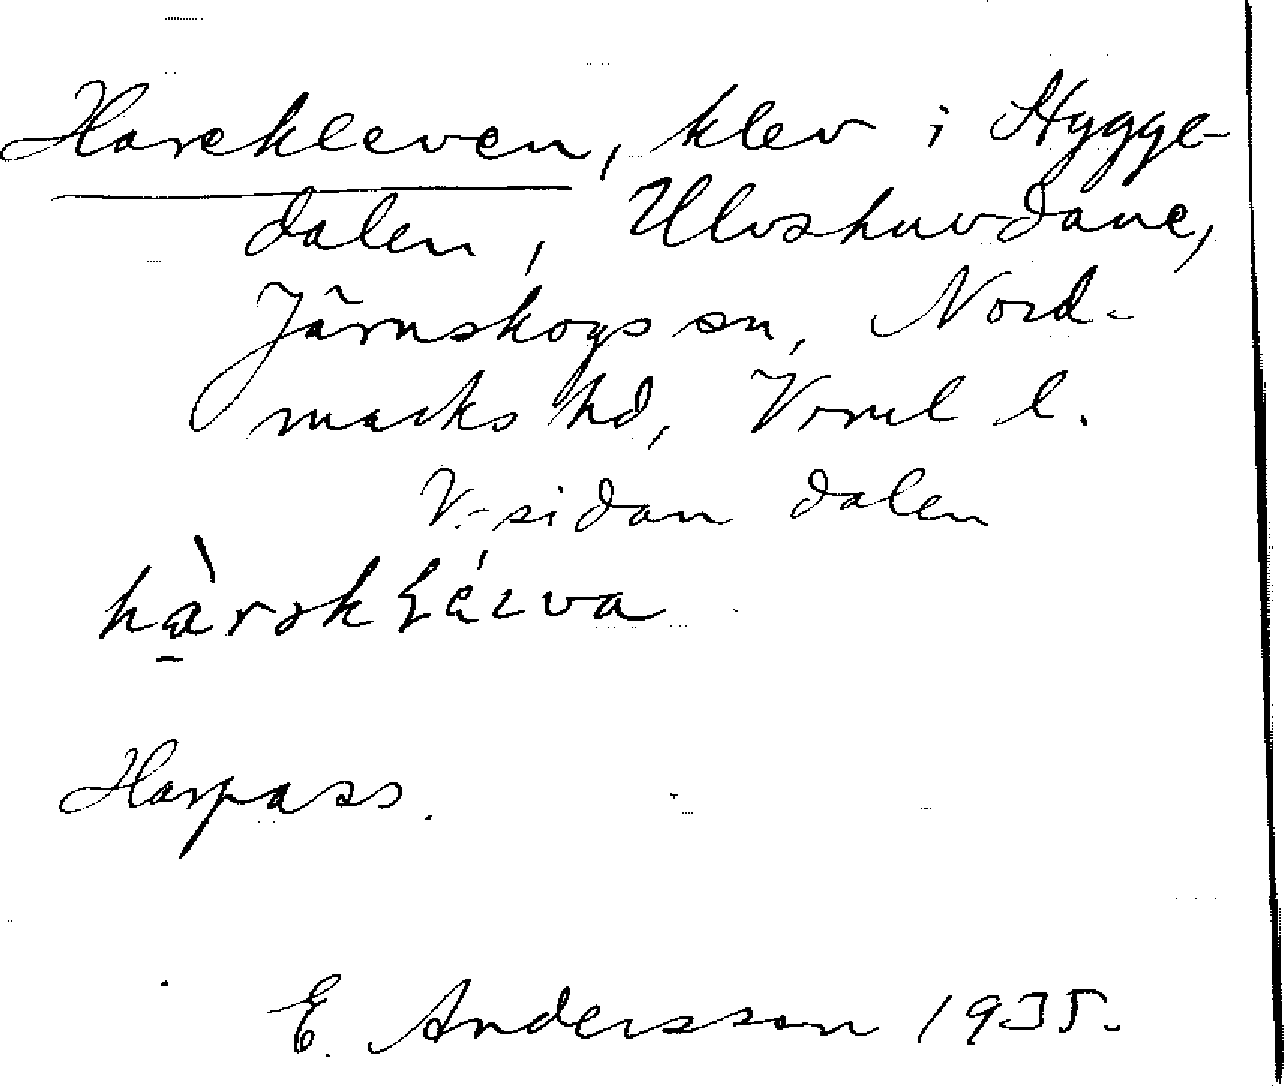 Harekleven, klev i Hygge-
dalen, Ulvshuvdane,
Järnskogs sn, Nord-
marks hd, Vrml l.
V.-sidan dalen
Harpass.
E. Andersson 1935.